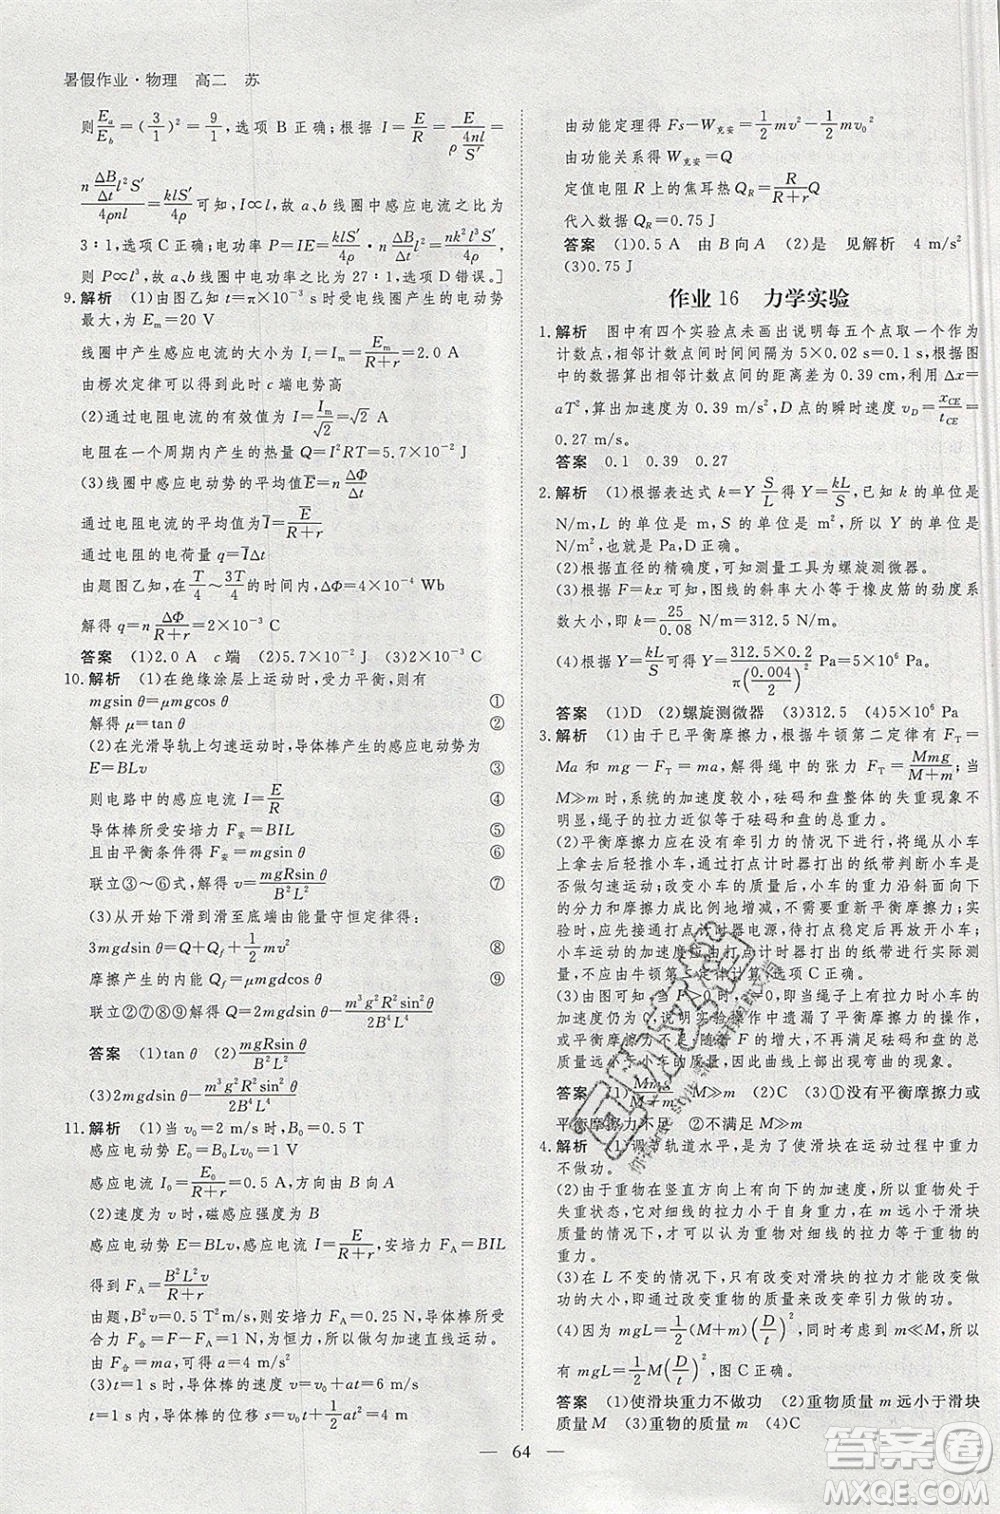 暑假作业·物理　高二　苏
则E_a/E_b=(3/1)²=9/1，选项 B 正确；根据 I=E/R=E/(ρ 4nl/S′)=
(n ΔB/Δt l² S′)/(4ρnl)=klS′/4ρ 可知，I∝l，故 a、b 线圈中感应电流之比为
3∶1，选项 C 正确；电功率 P=IE=klS′/4ρ·n ΔB/Δt l²=nk²l³S′/4ρ，
则 P∝l³，故 a、b 线圈中电功率之比为 27∶1，选项 D 错误。]
9. 解析　(1)由图乙可知 t=π×10⁻³ s 时受电线圈产生的电动势
最大，为 E_m=20 V
线圈中产生感应电流的大小为 I_t=I_m=E_m/(R+r)=2.0 A
由楞次定律可以得到此时 c 端电势高
(2)通过电阻电流的有效值为 I=I_m/√2=√2 A
电阻在一个周期内产生的热量 Q=I²RT=5.7×10⁻² J
(3)线圈中感应电动势的平均值 E̅=n ΔΦ/Δt
通过电阻电流的平均值为 I̅=E̅/(R+r)
通过电阻的电荷量 q=I̅Δt
由题图乙知，在 T/4～3T/4 的时间内，ΔΦ=4×10⁻⁴ Wb
解得 q=n ΔΦ/(R+r)=2×10⁻³ C
答案　(1)2.0 A　c 端　(2)5.7×10⁻² J　(3)2×10⁻³ C
10. 解析　(1)在绝缘涂层上运动时，受力平衡，则有
mgsin θ=μmgcos θ　①
解得 μ=tan θ　②
(2)在光滑导轨上匀速运动时，导体棒产生的感应电动势为
E=BLv　③
则电路中的感应电流 I=E/R　④
导体棒所受安培力 F_安=BIL　⑤
且由平衡条件得 F_安=mgsin θ　⑥
联立③～⑥式，解得 v=mgRsin θ/B²L²　⑦
(3)从开始下滑到滑至底端由能量守恒定律得：
3mgdsin θ=Q+Q_f+½mv²　⑧
摩擦产生的内能 Q_f=μmgdcos θ　⑨
联立②⑦⑧⑨解得 Q=2mgdsin θ-m³g²R²sin²θ/2B⁴L⁴
答案　(1)tan θ　(2)mgRsin θ/B²L²
(3)2mgdsin θ-m³g²R²sin²θ/2B⁴L⁴
11. 解析　(1)当 v₀=1 m/s 时，B₀=0.5 T
感应电动势 E₀=B₀Lv₀
感应电流 I₀=E₀/(R+r)=0.5 A，方向由 B 向 A
(2)速度为 v，磁感应强度为 B
感应电动势 E=BLv，感应电流 I=E/(R+r)，安培力 F_A=BIL
得到 F_A=B²L²v/(R+r)
由题，B²v=0.5 T²m/s，则安培力 F_A=0.25 N，导体棒所受
合力 F_合=F-F_A=1 N，为恒力，所以做匀加速直线运动。
由 F_合=ma，可得 a=4 m/s²
(3)t=1 s 时，导体棒的速度 v=v₀+at=5 m/s
t=1 s 时，导体棒的位移 s=v₀t+½at²=3 m
由动能定理得 Fs-W_克安=½mv²-½mv₀²
由功能关系得 W_克安=Q
定值电阻 R 上的焦耳热 Q_R=R/(R+r) Q
代入数据 Q_R=0.75 J
答案　(1)0.5 A　由 B 向 A　(2)是　见解析　4 m/s²
(3)0.75 J
作业 16　力学实验
1. 解析　图中有四个实验点未画出说明每五个点取一个作为
计数点，相邻计数点间时间间隔为 5×0.02 s=0.1 s，根据图
中的数据算出相邻计数点间的距离差为 0.39 cm，利用 Δx=
aT²，算出加速度为 0.39 m/s²，D 点的瞬时速度 v_D=x_CE/t_CE=
0.27 m/s。
答案　0.1　0.39　0.27
2. 解析　(1)根据表达式 k=Y S/L 得 Y=kL/S，已知 k 的单位是
N/m，L 的单位是 m，S 的单位是 m²，所以 Y 的单位是
N/m²，也就是 Pa，D 正确。
(2)根据直径的精确度，可知测量工具为螺旋测微器。
(3)根据 F=kx 可知，图线的斜率大小等于橡皮筋的劲度系
数大小，即 k=25/0.08 N/m=312.5 N/m。
(4)根据 Y=kL/S=312.5×0.2/π(0.004/2)² Pa≈5×10⁶ Pa。
答案　(1)D　(2)螺旋测微器　(3)312.5　(4)5×10⁶ Pa
3. 解析　(1)由于已平衡摩擦力，根据牛顿第二定律有 F_T=
Ma 和 mg-F_T=ma，解得绳中的张力 F_T=Mmg/(M+m)，当
M≫m 时，系统的加速度较小，砝码和盘整体的失重现象不
明显，绳子的拉力近似等于砝码和盘的总重力。
(2)平衡摩擦力应在没有牵引力的情况下进行，将纸带从小车
上穿过打点计时器，轻推小车，通过打点计时器打出的纸带判断小车是
否做匀速运动；改变小车的质量，小车的重力沿斜面方向的
分力和摩擦力成比例地增减，不需要重新平衡摩擦力；实验
时，应先接通打点计时器电源，待打点稳定后再放开小车；
小车运动的加速度由打点计时器打出的纸带进行实际测
量，而不能用牛顿第二定律计算，选项 C 正确。
(3)由图可知，当 F>0 时，说明当绳子有了拉力时小车的加
速度仍为 0，说明没有平衡摩擦力或平衡摩擦力不足；
小车质量 M 一定时，随着 F 的增大，增大到不满足
M≫m，因此曲线上部出现弯曲的现象。
答案　(1)Mmg/(M+m)　M≫m　(2)C　(3)①没有平衡摩擦力或
平衡摩擦力不足　②不满足 M≫m
4. 解析　(1)调节轨道水平，是为了使滑块在运动过程中重力
不做功。
(2)由于重物在竖直方向上有向下的加速度，所以重物处于
失重状态，它对细线的拉力小于自身重力，在 m 远小于滑块
质量 M 的情况下，可以认为重物对细线的拉力等于重物的
重力。
(3)在 L 不变的情况下，要想改变对滑块的拉力在该过程做
功的大小，可以通过改变重物的质量大小来改变拉力大小。
(4)因为 mgL=½(M+m)(D/t)²，所以在 m≪M，实际上
有 mgL=½M(D/t)²，图 C 正确。
答案　(1)使滑块重力不做功　(2)重物质量 m 远小于滑块
质量 M　(3)重物的质量 m　(4)C
— 64 —
答案卷
MXQE.COM